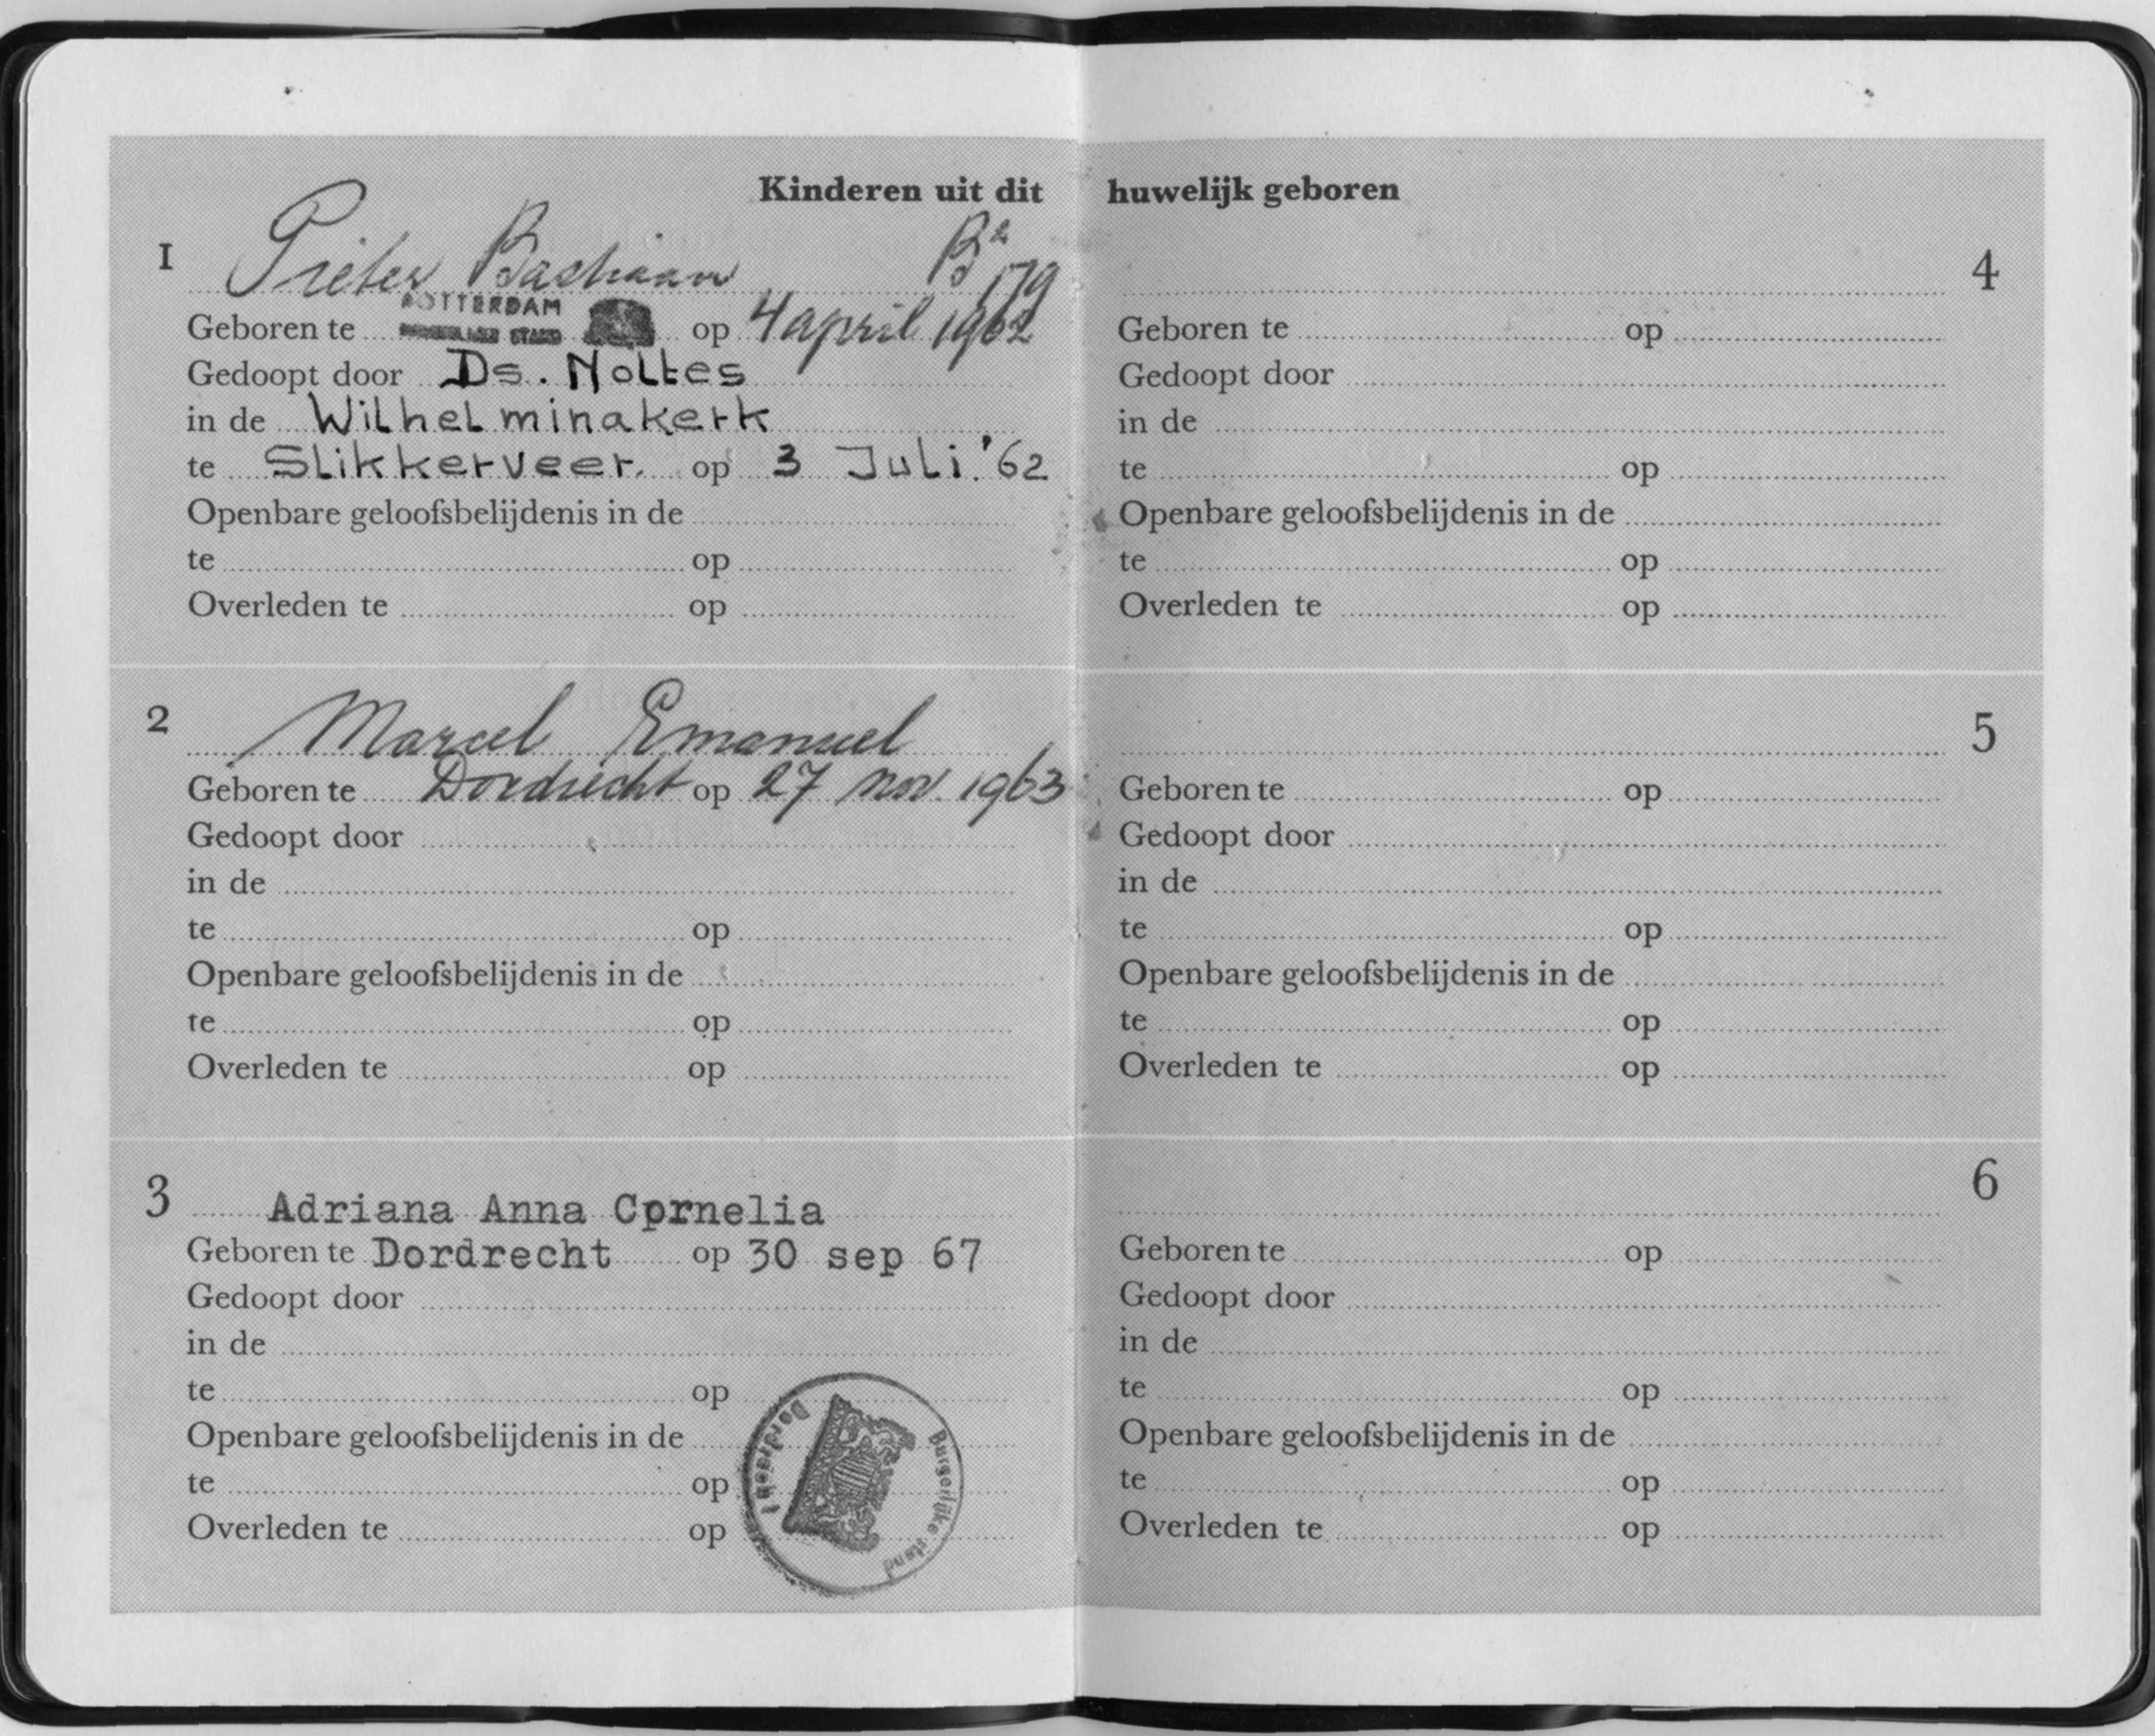 Kinderen uit dit huwelijk geboren
1 Pieter Bastiaan B2 179
ROTTERDAM
BURGERLIJKE STAND
Geboren te op 4 april 1962
Gedoopt door Ds. Noltes
in de Wilhelminakerk
te Slikkerveer. op 3 Juli. '62
Openbare geloofsbelijdenis in de
te op
Overleden te op
2 Marcel Emanuel
Geboren te Dordrecht op 27 nov. 1963
Gedoopt door
in de
te op
Openbare geloofsbelijdenis in de
te op
Overleden te op
3 Adriana Anna Cprnelia
Geboren te Dordrecht op 30 sep 67
Gedoopt door
in de
te op
Openbare geloofsbelijdenis in de
te op
Overleden te op
Dordrecht
Burgerlijke stand
4
Geboren te op
Gedoopt door
in de
te op
Openbare geloofsbelijdenis in de
te op
Overleden te op
5
Geboren te op
Gedoopt door
in de
te op
Openbare geloofsbelijdenis in de
te op
Overleden te op
6
Geboren te op
Gedoopt door
in de
te op
Openbare geloofsbelijdenis in de
te op
Overleden te op